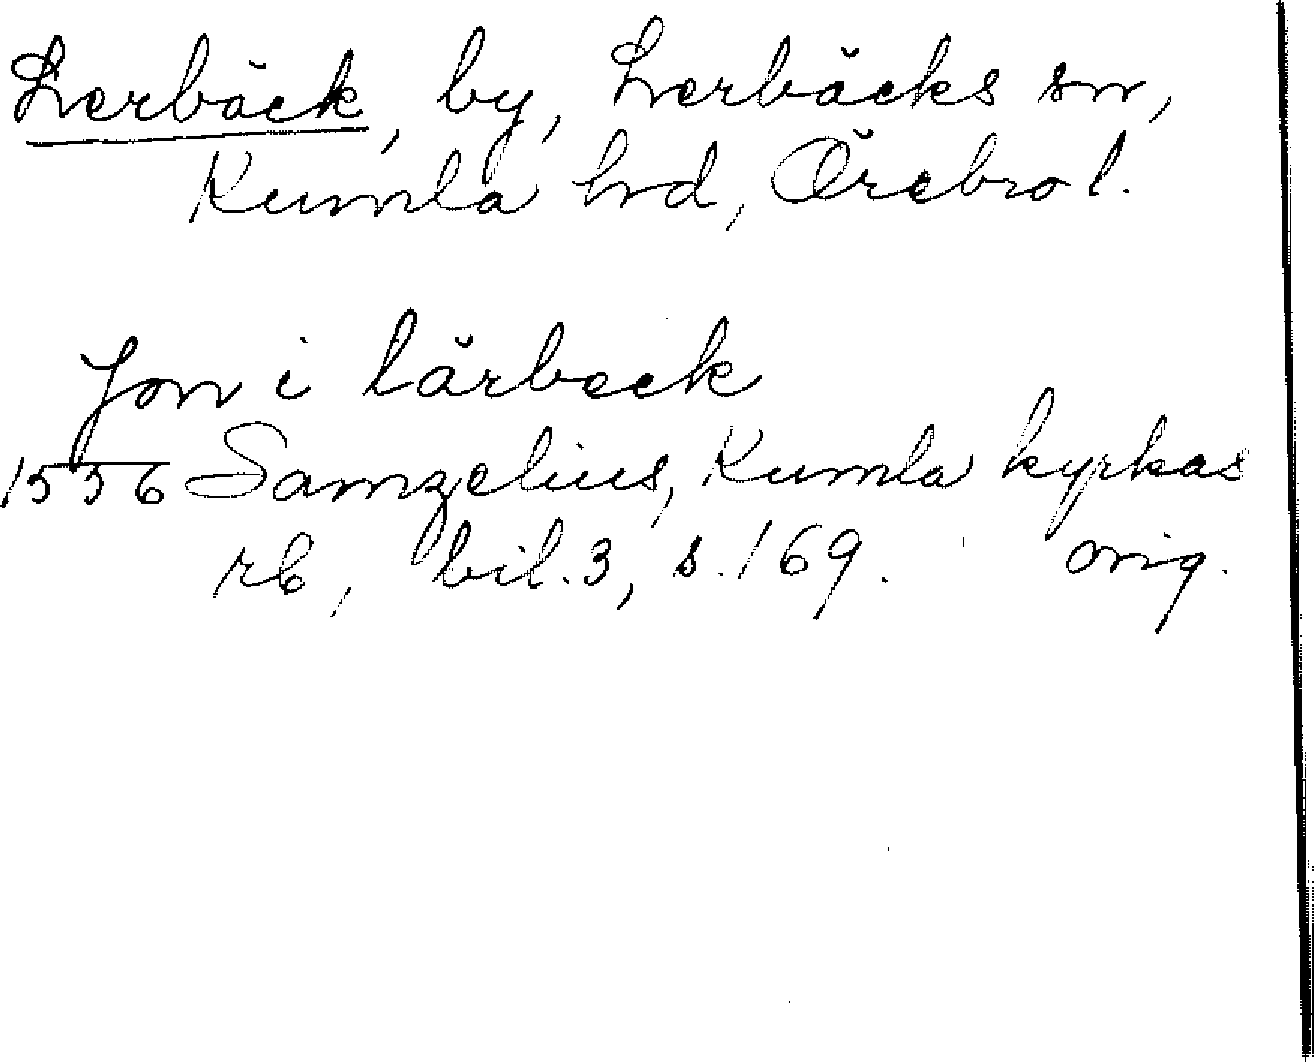 Lerbäck, by, Lerbäcks sn,
Kumla hd, Örebro l.
Jon i lärbeck
1556 Samzelius, Kumla kyrkas
rb, bil. 3, s. 169. orig.